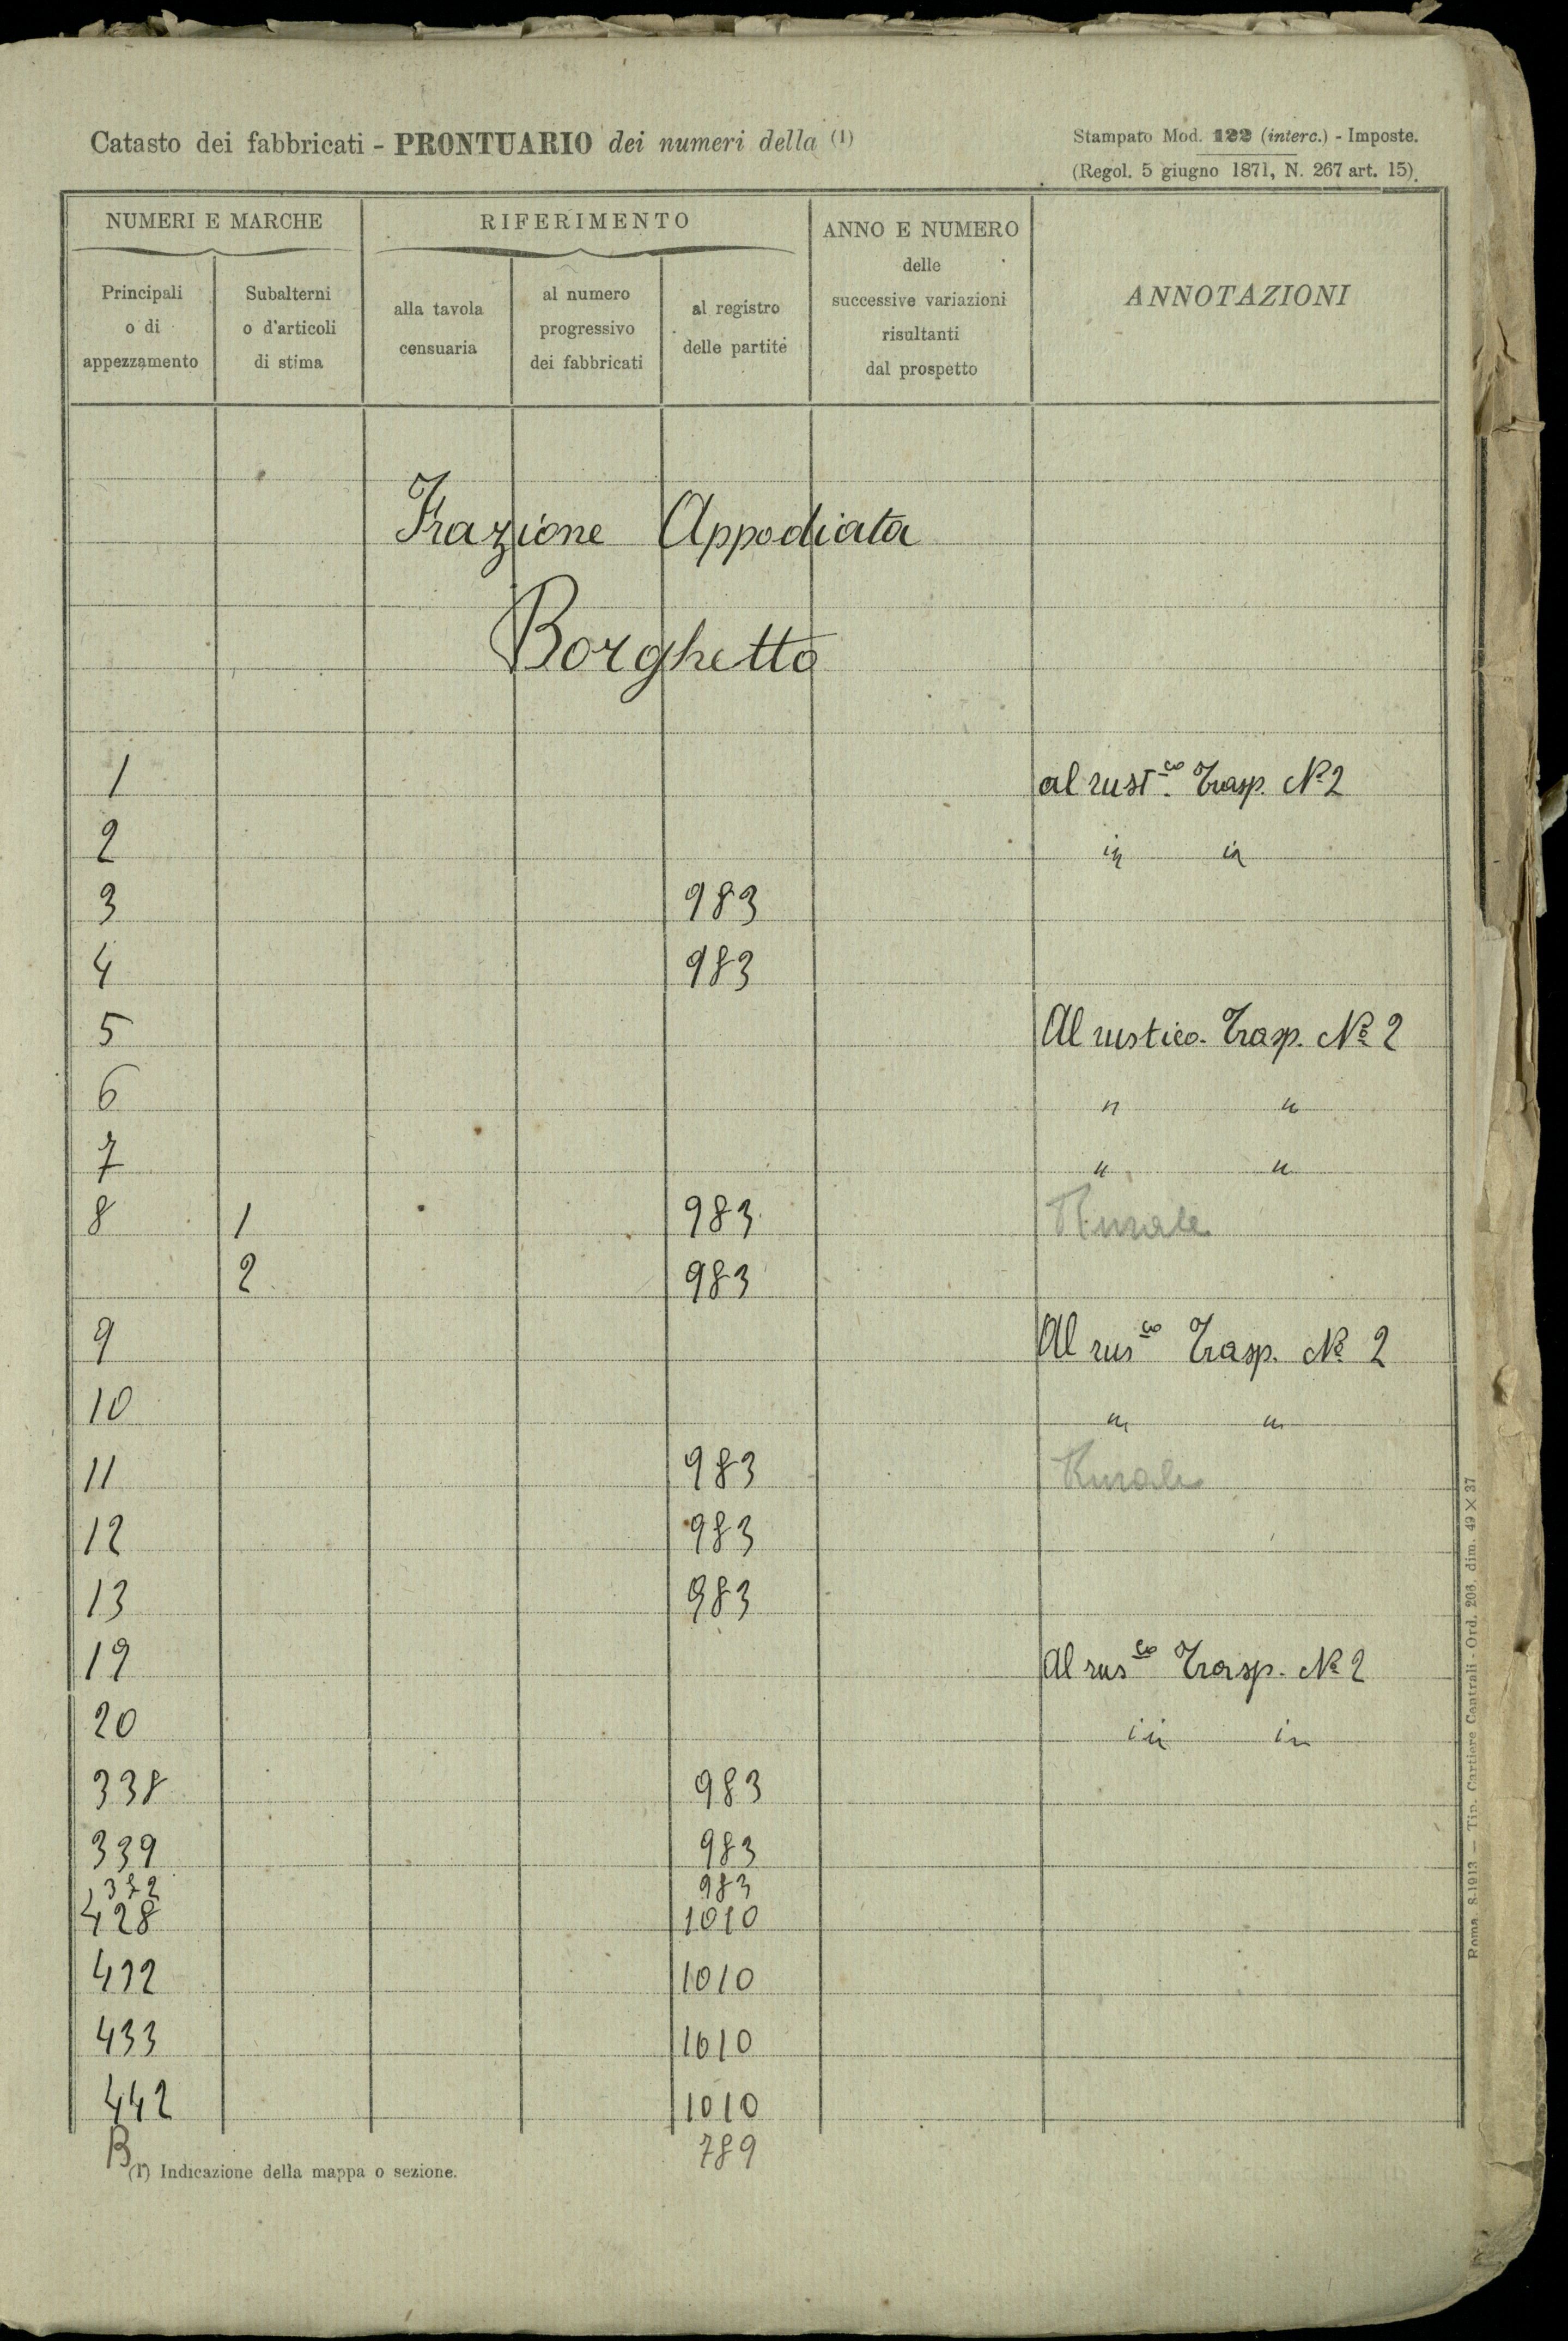 Catasto dei fabbricati - PRONTUARIO dei numeri della (1)
Stampato Mod. 122 (interc.) - Imposte.
(Regol. 5 giugno 1871, N. 267 art. 15).
NUMERI E MARCHE
RIFERIMENTO
ANNO E NUMERO
delle
successive variazioni
risultanti
dal prospetto
ANNOTAZIONI
Principali
o di
appezzamento
Subalterni
o d'articoli
di stima
alla tavola
censuaria
al numero
progressivo
dei fabbricati
al registro
delle partite
Frazione Appodiata
Borghetto
1 al rust.co Trasp. No 2
2
3 983
4 983
5 Al rustico. Trasp. No 2
6 " "
7 " "
8 1 983 Rurale
2 983
9 Al rus.co Trasp. No 2
10 " "
11 983 Rurale
12 983
13 983
19 Al rus.co Trasp. No 2
20
338 983
339 983
372 983
428 1010
432 1010
433 1010
442 1010
B 789
(1) Indicazione della mappa o sezione.
Roma, 8-1913 — Tip. Cartiere Centrali - Ord. 206, dim. 49 × 37